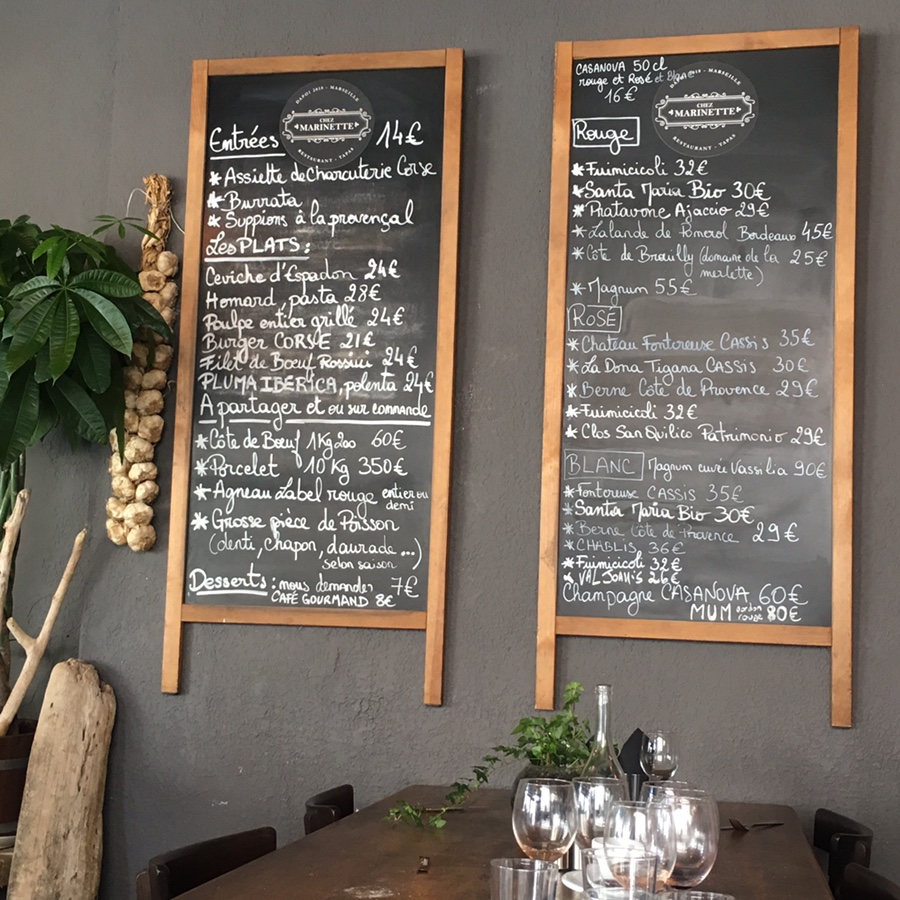 DEPUI 2018 - MARSEILLE
CHEZ
MARINETTE
RESTAURANT - TAPAS
Entrées 14€
* Assiette de Charcuterie Corse
* Burrata
* Suppions à la provençal
Les PLATS :
Ceviche d'Espadon 24€
Homard, pasta 28€
Poulpe entier grillé 24€
Burger CORSE 21€
Filet de Boeuf Rossini 24€
PLUMA IBERICA, polenta 24€
A partager et ou sur commande
* Côte de Boeuf 1Kg200 60€
* Porcelet 10 Kg 350€
* Agneau Label rouge entier ou
demi
* Grosse pièce de Poisson
(denti, chapon, daurade...)
selon saison
Desserts : nous demander 7€
CAFÉ GOURMAND 8€
CASANOVA 50 cl
rouge et Rosé et Blanc
16€
DEPUI 2018 - MARSEILLE
CHEZ
MARINETTE
RESTAURANT - TAPAS
Rouge
* Fuimicicoli 32€
* Santa Maria Bio 30€
* Pratavone Ajaccio 29€
* Lalande de Pomerol Bordeaux 45€
* Côte de Brouilly (domaine de la 25€
merlette)
* Magnum 55€
ROSÉ
* Chateau Fontcreuse CASSIS 35€
* La Dona Tigana CASSIS 30€
* Berne Côte de Provence 29€
* Fuimicicoli 32€
* Clos San Quilico Patrimonio 29€
BLANC Magnum cuvée Vassilia 90€
* Fontcreuse CASSIS 35€
* Santa Maria Bio 30€
* Berne Côte de Provence 29€
* CHABLIS 36€
* Fuimicicoli 32€
* VAL JOANIS 26€
Champagne CASANOVA 60€
MUM cordon
rouge 80€